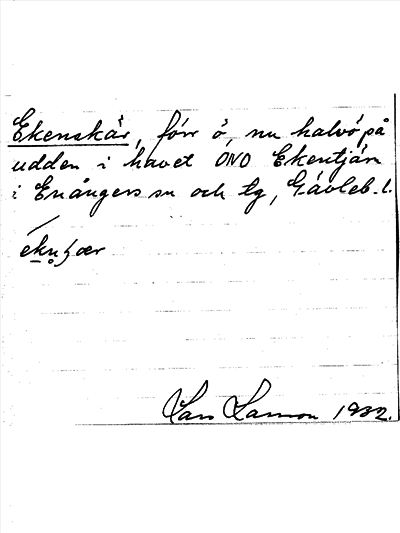 Ekenskär, förr ö, nu halvö på
udden i havet ÖNO Ekentjärn
i Enångers sn och tg, Gävleb. l.
Lars Larsson 1932.